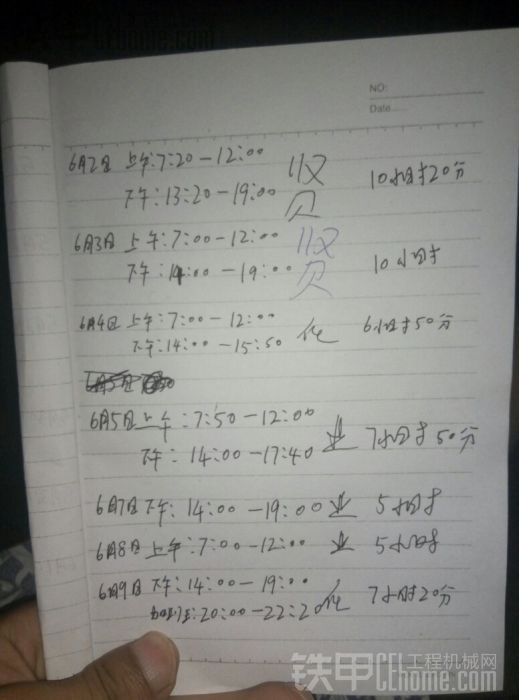 铁甲
CEhome.com
NO:
Date
6月2日 上午:7:20-12:00
下午:13:20-19:00 10小时20分
6月3日 上午:7:00-12:00
下午:14:00-19:00 10小时
6月4日 上午:7:00-12:00 6小时50分
下午:14:00-15:50
6月5日上午:7:50-12:00
下午:14:00-17:40 业 7小时50分
6月7日下午:14:00-19:00 业 5小时
6月8日上午:7:00-12:00 业 5小时
6月9日下午:14:00-19:00 7小时20分
加班:20:00-22:20
铁甲工程机械网
CEhome.com